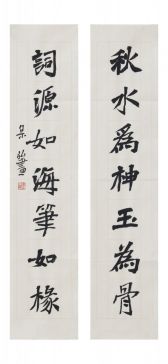 秋水為神玉為骨
詞源如海筆如椽